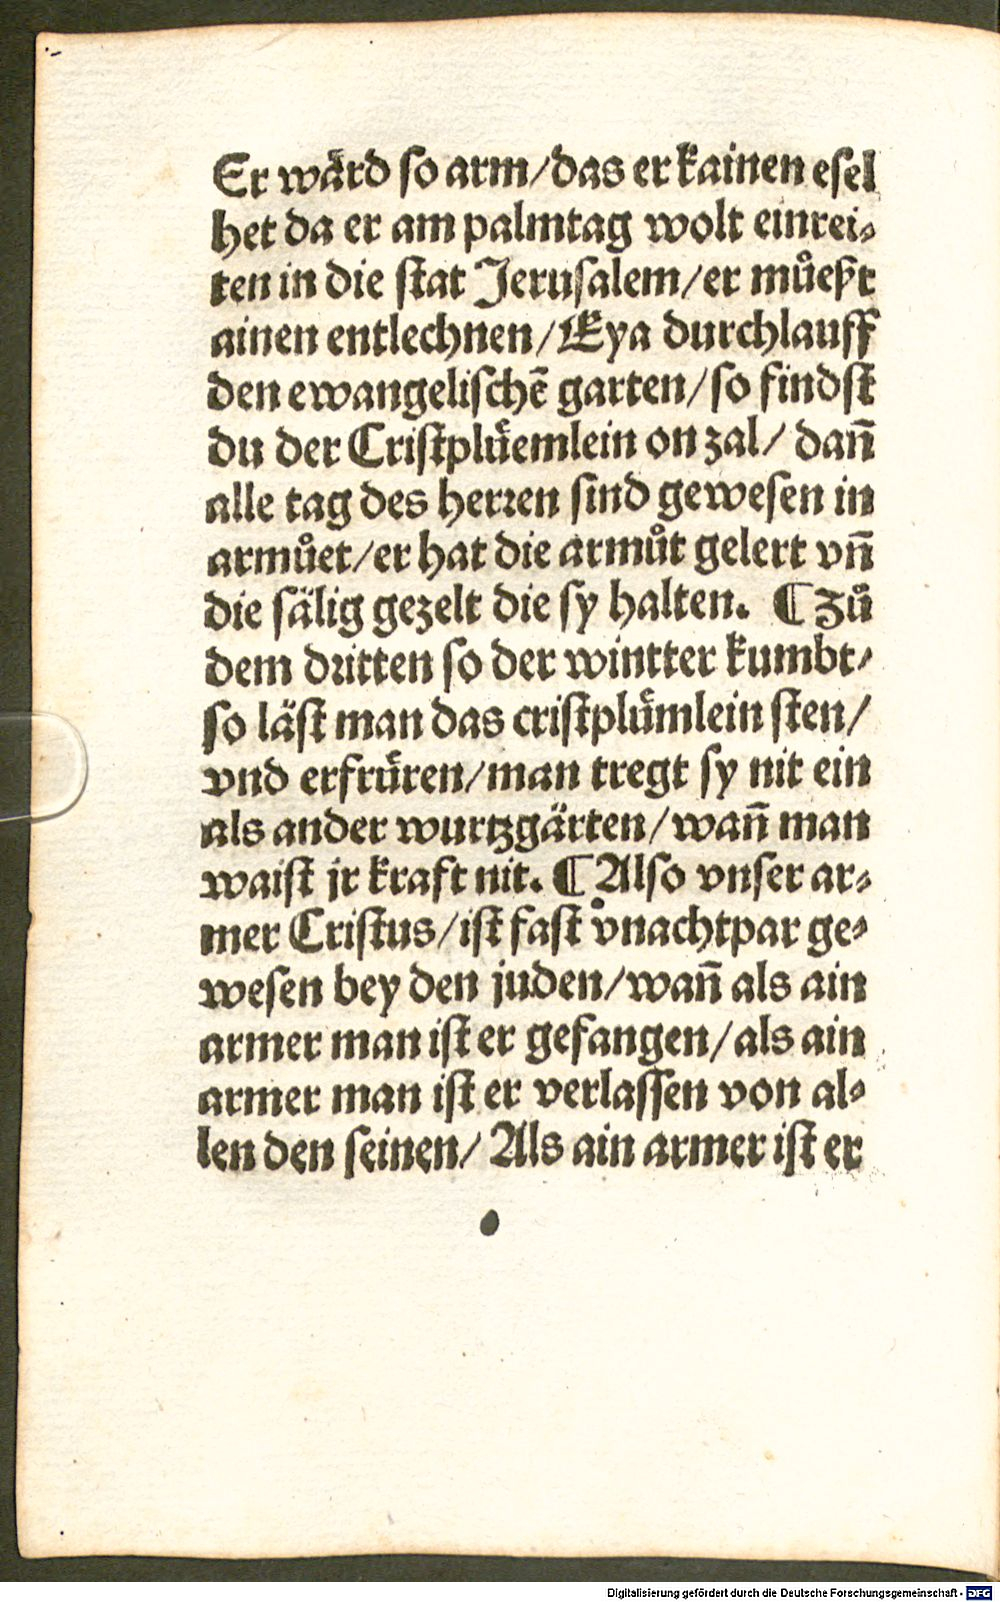 Er wård so arm/das er kainen esel
het da er am palmtag wolt einrei⸗
ten in die stat Jerusalem/er můeßt
ainen entlechnen/Eya durchlauff
den ewangelischē garten/so findst
du der Cristplůemlein on zal/ dañ
alle tag des herꝛen sind gewesen in
armůet/er hat die armůt gelert vñ
die sälig gezelt die sy halten. ¶ Zů
dem dꝛitten so der wintter kumbt/
so läst man das cristplůmlein sten/
vnd erfrůren/man tregt sy nit ein
als ander wurtzgärten/wañ man
waist jr kraft nit. ¶ Also vnser ar⸗
mer Cristus/ist fast v̊nachtpar ge⸗
wesen bey den juden/wañ als ain
armer man ist er gefangen/als ain
armer man ist er verlassen von al⸗
len den seinen/ Als ain armer ist er
Digitalisierung gefördert durch die Deutsche Forschungsgemeinschaft - DFG